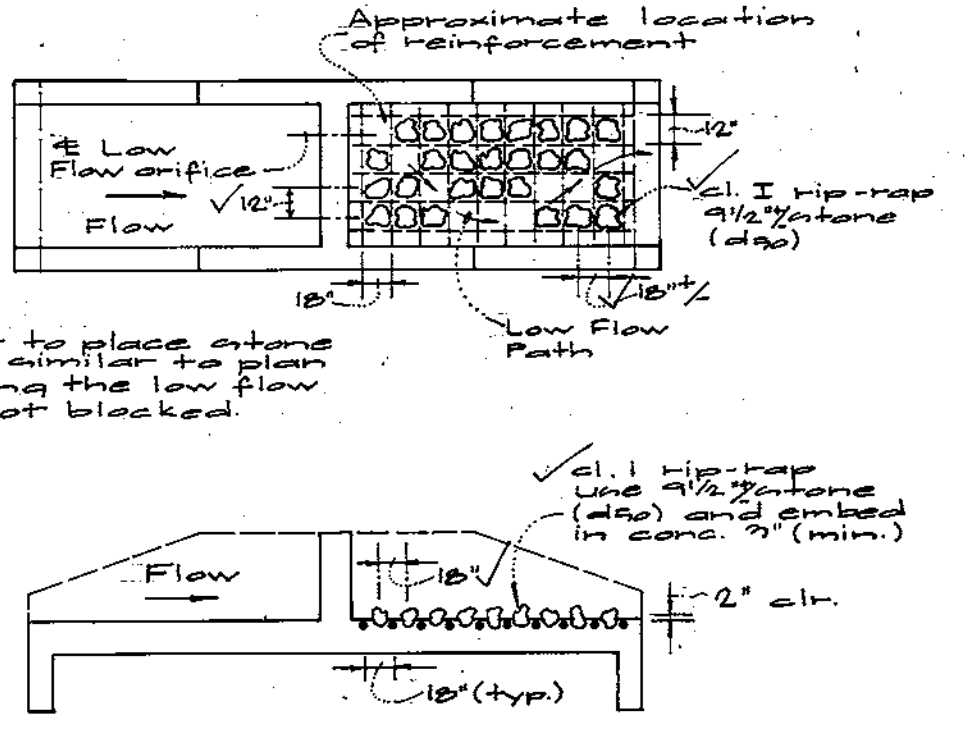 Approximate location
of reinforcement
℄ Low
Flow orifice
12"
Flow
12"
cl. I rip-rap
9 1/2" +/- stone
(d50)
18"
18" +/-
Low Flow
Path
to place stone
similar to plan
the low flow
blocked.
cl. I rip-rap
use 9 1/2" +/- stone
(d50) and embed
in conc. 3" (min.)
Flow
18"
2" clr.
18" (typ.)